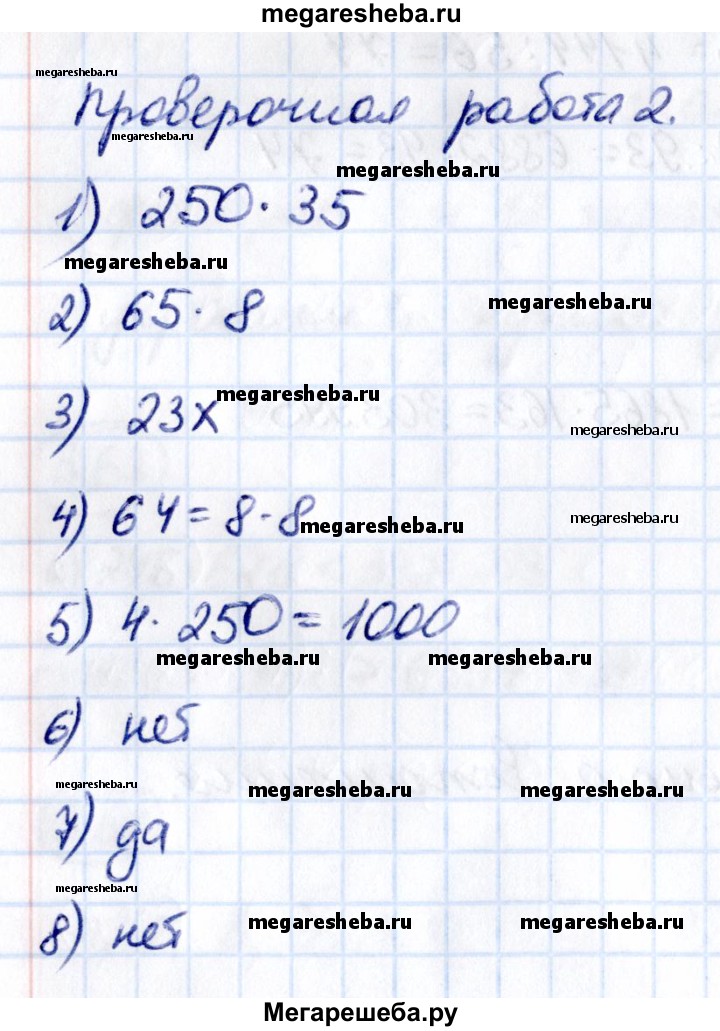 megaresheba.ru
megaresheba.ru
Проверочная работа 2.
megaresheba.ru
megaresheba.ru
1) 250 · 35
megaresheba.ru
2) 65 · 8
megaresheba.ru
3) 23x
megaresheba.ru
megaresheba.ru
4) 64 = 8 · 8
megaresheba.ru
megaresheba.ru
5) 4 · 250 = 1000
megaresheba.ru megaresheba.ru
6) нет
megaresheba.ru megaresheba.ru megaresheba.ru
7) да
megaresheba.ru
8) нет
megaresheba.ru megaresheba.ru
Мегарешеба.ру